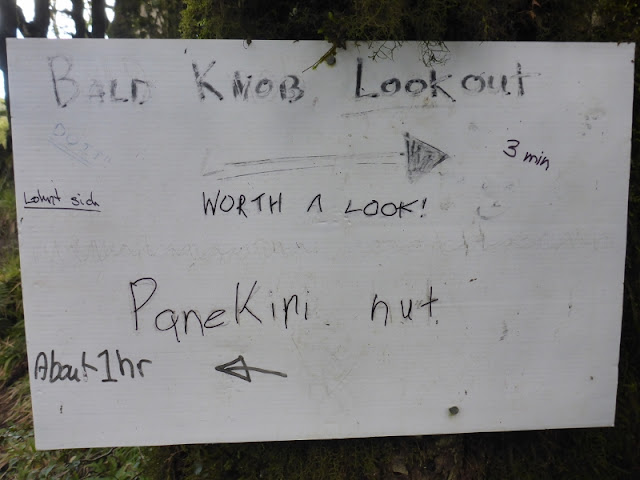 BALD KNOB LOOKOUT
3 min
Lohnt sich
WORTH A LOOK!
PaneKiri hut
About 1hr